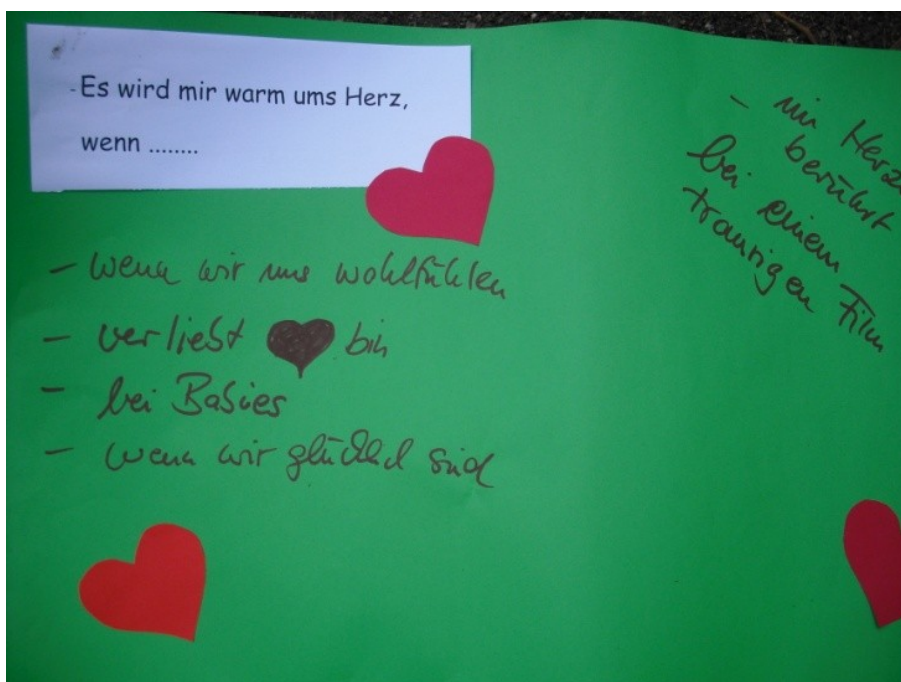 - Es wird mir warm ums Herz,
wenn ........
- wenn wir uns wohlfühlen
- verliebt bin
- bei Babies
- wenn wir glücklich sind
- im Herzen
berührt
bei einem
traurigen Film